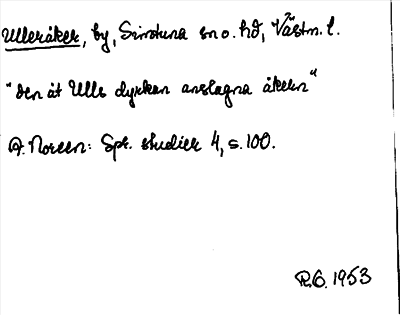 Ulleråker, by, Simtuna sn o. hd, Västm. l.
"den åt Ulls dyrkan anslagna åkern"
A. Noreen: Spr. studier 4, s. 100.
R.O. 1953